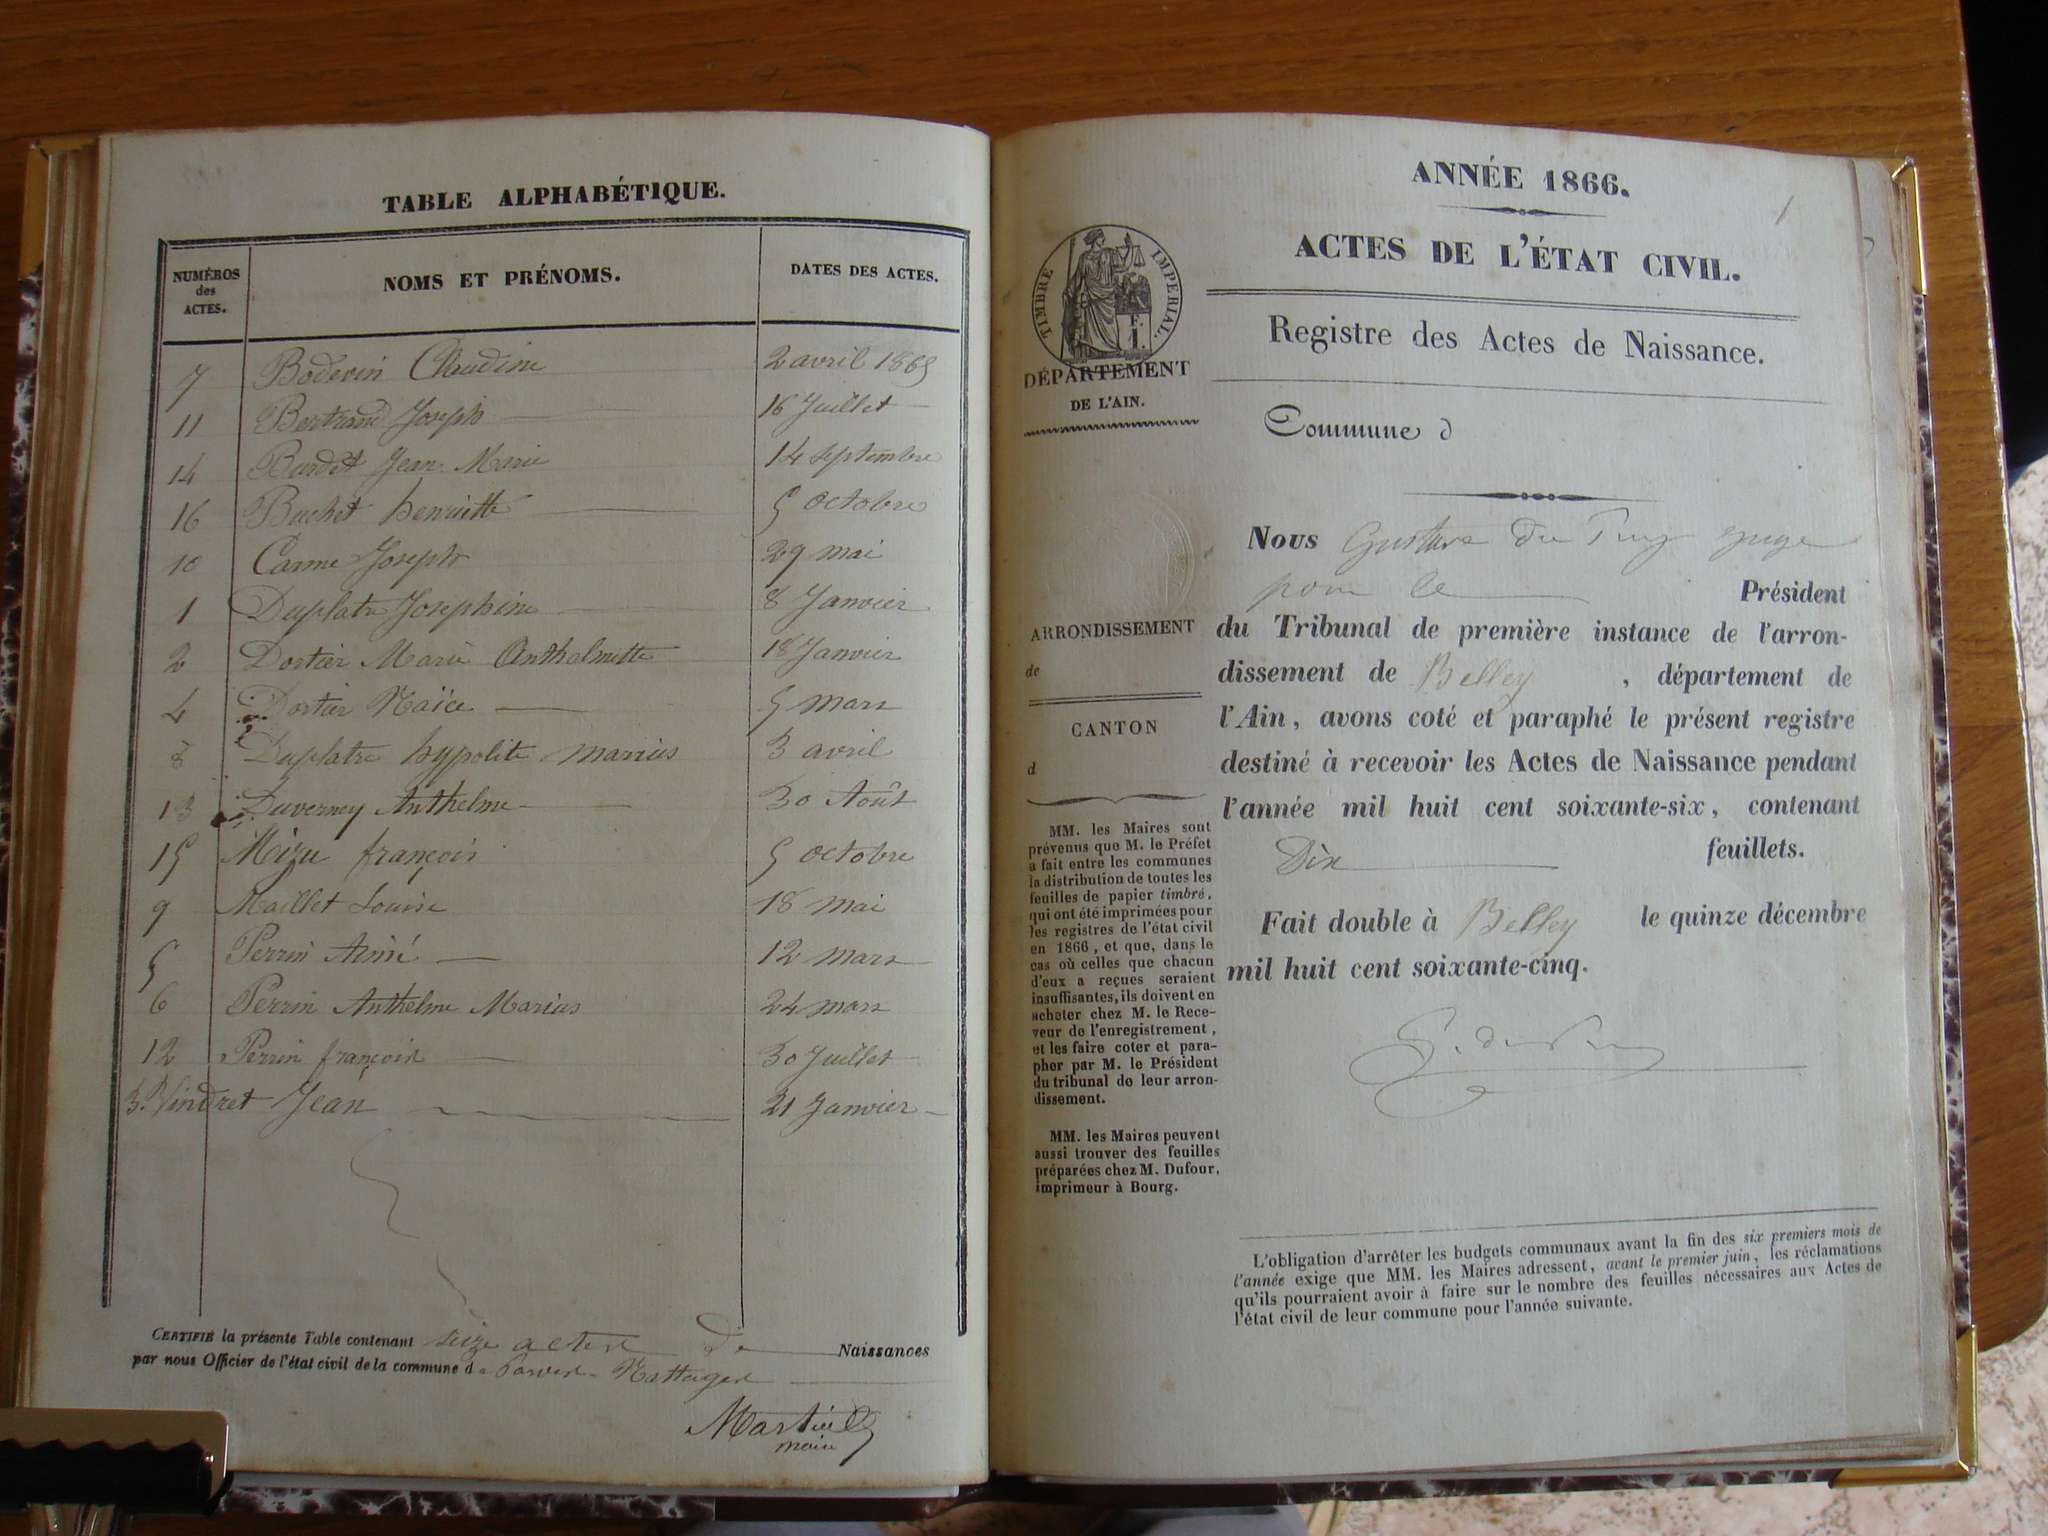 TABLE ALPHABÉTIQUE.
NUMÉROS des ACTES. NOMS ET PRÉNOMS. DATES DES ACTES.
7 Bodevin Claudine 2 avril 1865
11 Bertrand Joseph 16 Juillet
14 Burdet Jean Marie 14 septembre
16 Buchet henriette 5 octobre
10 Carme Joseph 29 mai
1 Duplatre Josephine 8 Janvier
2 Dortier Marie Anthelmette 18 Janvier
4 Dortier 5 mars
8 Duplatre hypolite marius 3 avril
13 Duverney Anthelme 30 Août
15 françois 5 octobre
9 Maillet Louise 18 mai
5 Perrin Aimé 12 mars
6 Perrin Anthelme Marius 24 mars
12 Perrin françois 30 Juillet
3. Vindret Jean 21 Janvier
CERTIFIÉ la présente Table contenant seize actes de Naissances
par nous Officier de l'état civil de la commune de Parves Nattages
maire
ANNÉE 1866.
1
ACTES DE L'ÉTAT CIVIL.
TIMBRE IMPERIAL.
Registre des Actes de Naissance.
DÉPARTEMENT
DE L'AIN.
Commune d
ARRONDISSEMENT
de
CANTON
d
MM. les Maires sont
prévenus que M. le Préfet
a fait entre les communes
la distribution de toutes les
feuilles de papier timbré,
qui ont été imprimées pour
les registres de l'état civil
en 1866, et que, dans le
cas où celles que chacun
d'eux a reçues seraient
insuffisantes, ils doivent en
acheter chez M. le Rece-
veur de l'enregistrement,
et les faire coter et para-
pher par M. le Président
du tribunal de leur arron-
dissement.
MM. les Maires peuvent
aussi trouver des feuilles
préparées chez M. Dufour,
imprimeur à Bourg.
Nous Gustave du Puy juge
pour le Président
du Tribunal de première instance de l'arron-
dissement de Belley, département de
l'Ain, avons coté et paraphé le présent registre
destiné à recevoir les Actes de Naissance pendant
l'année mil huit cent soixante-six, contenant
Dix feuillets.
Fait double à Belley le quinze décembre
mil huit cent soixante-cinq.
L'obligation d'arrêter les budgets communaux avant la fin des six premiers mois de
l'année exige que MM. les Maires adressent, avant le premier juin, les réclamations
qu'ils pourraient avoir à faire sur le nombre des feuilles nécessaires aux Actes de
l'état civil de leur commune pour l'année suivante.